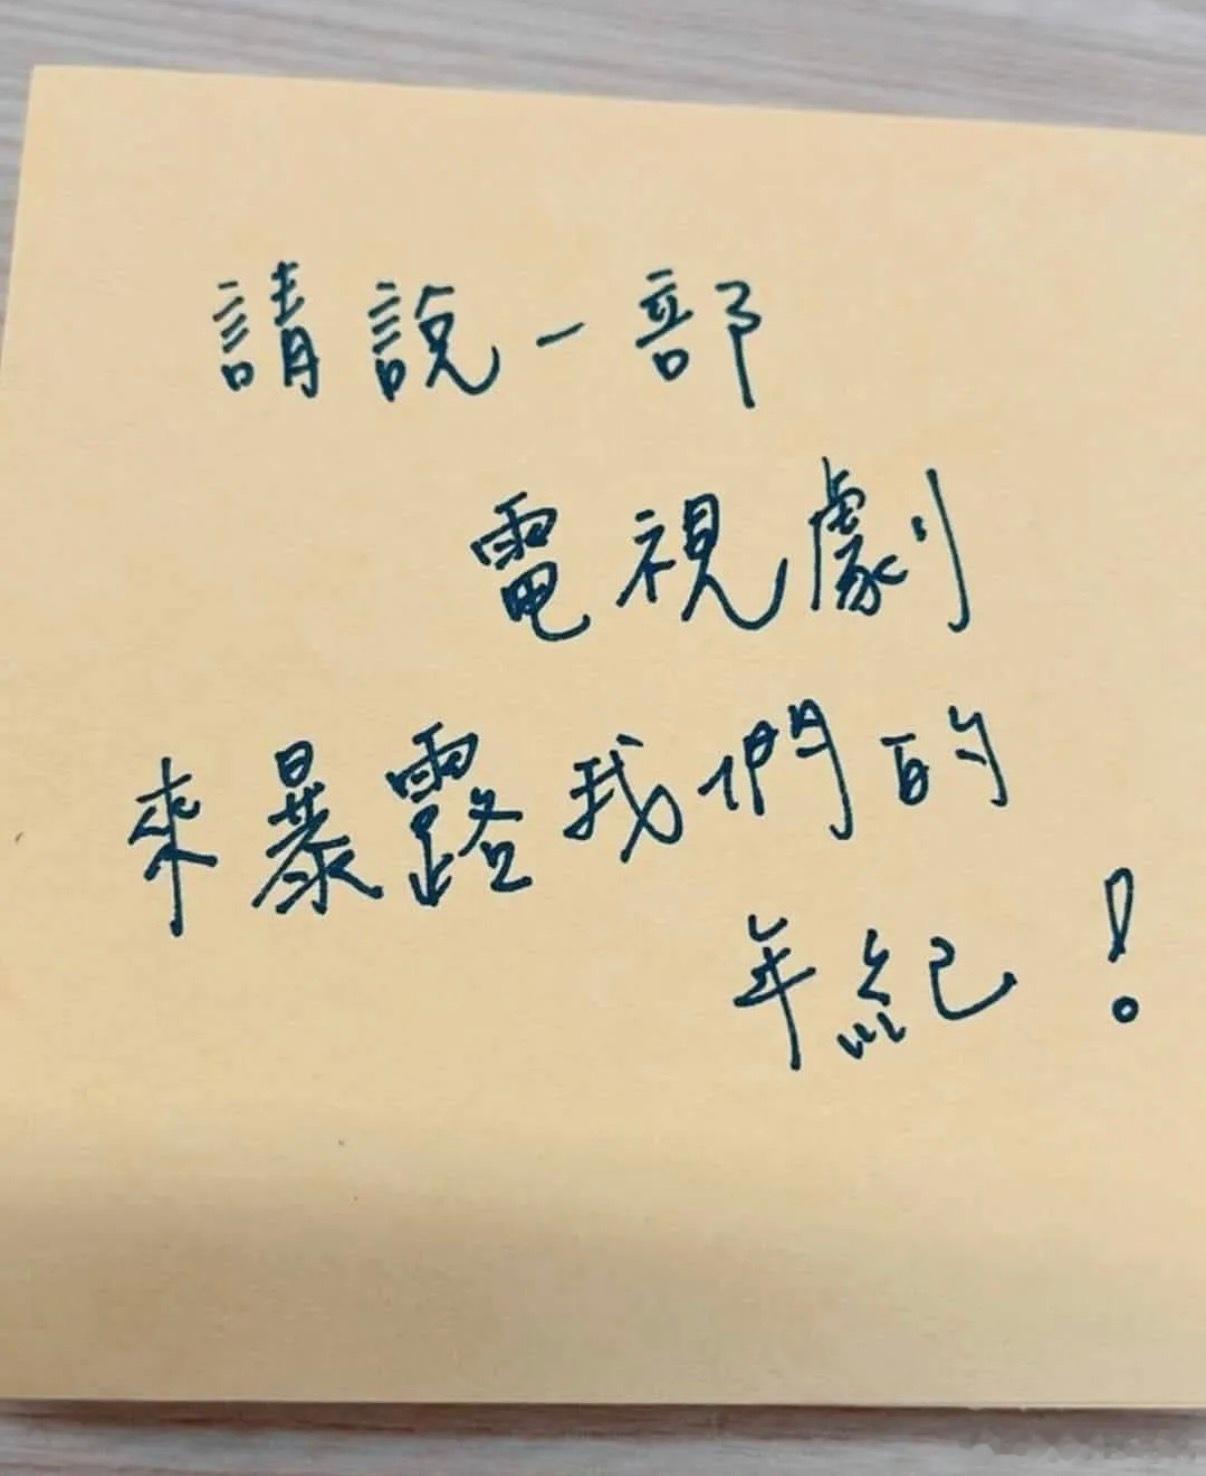 請說一部
電視劇
來暴露我們的
年紀！